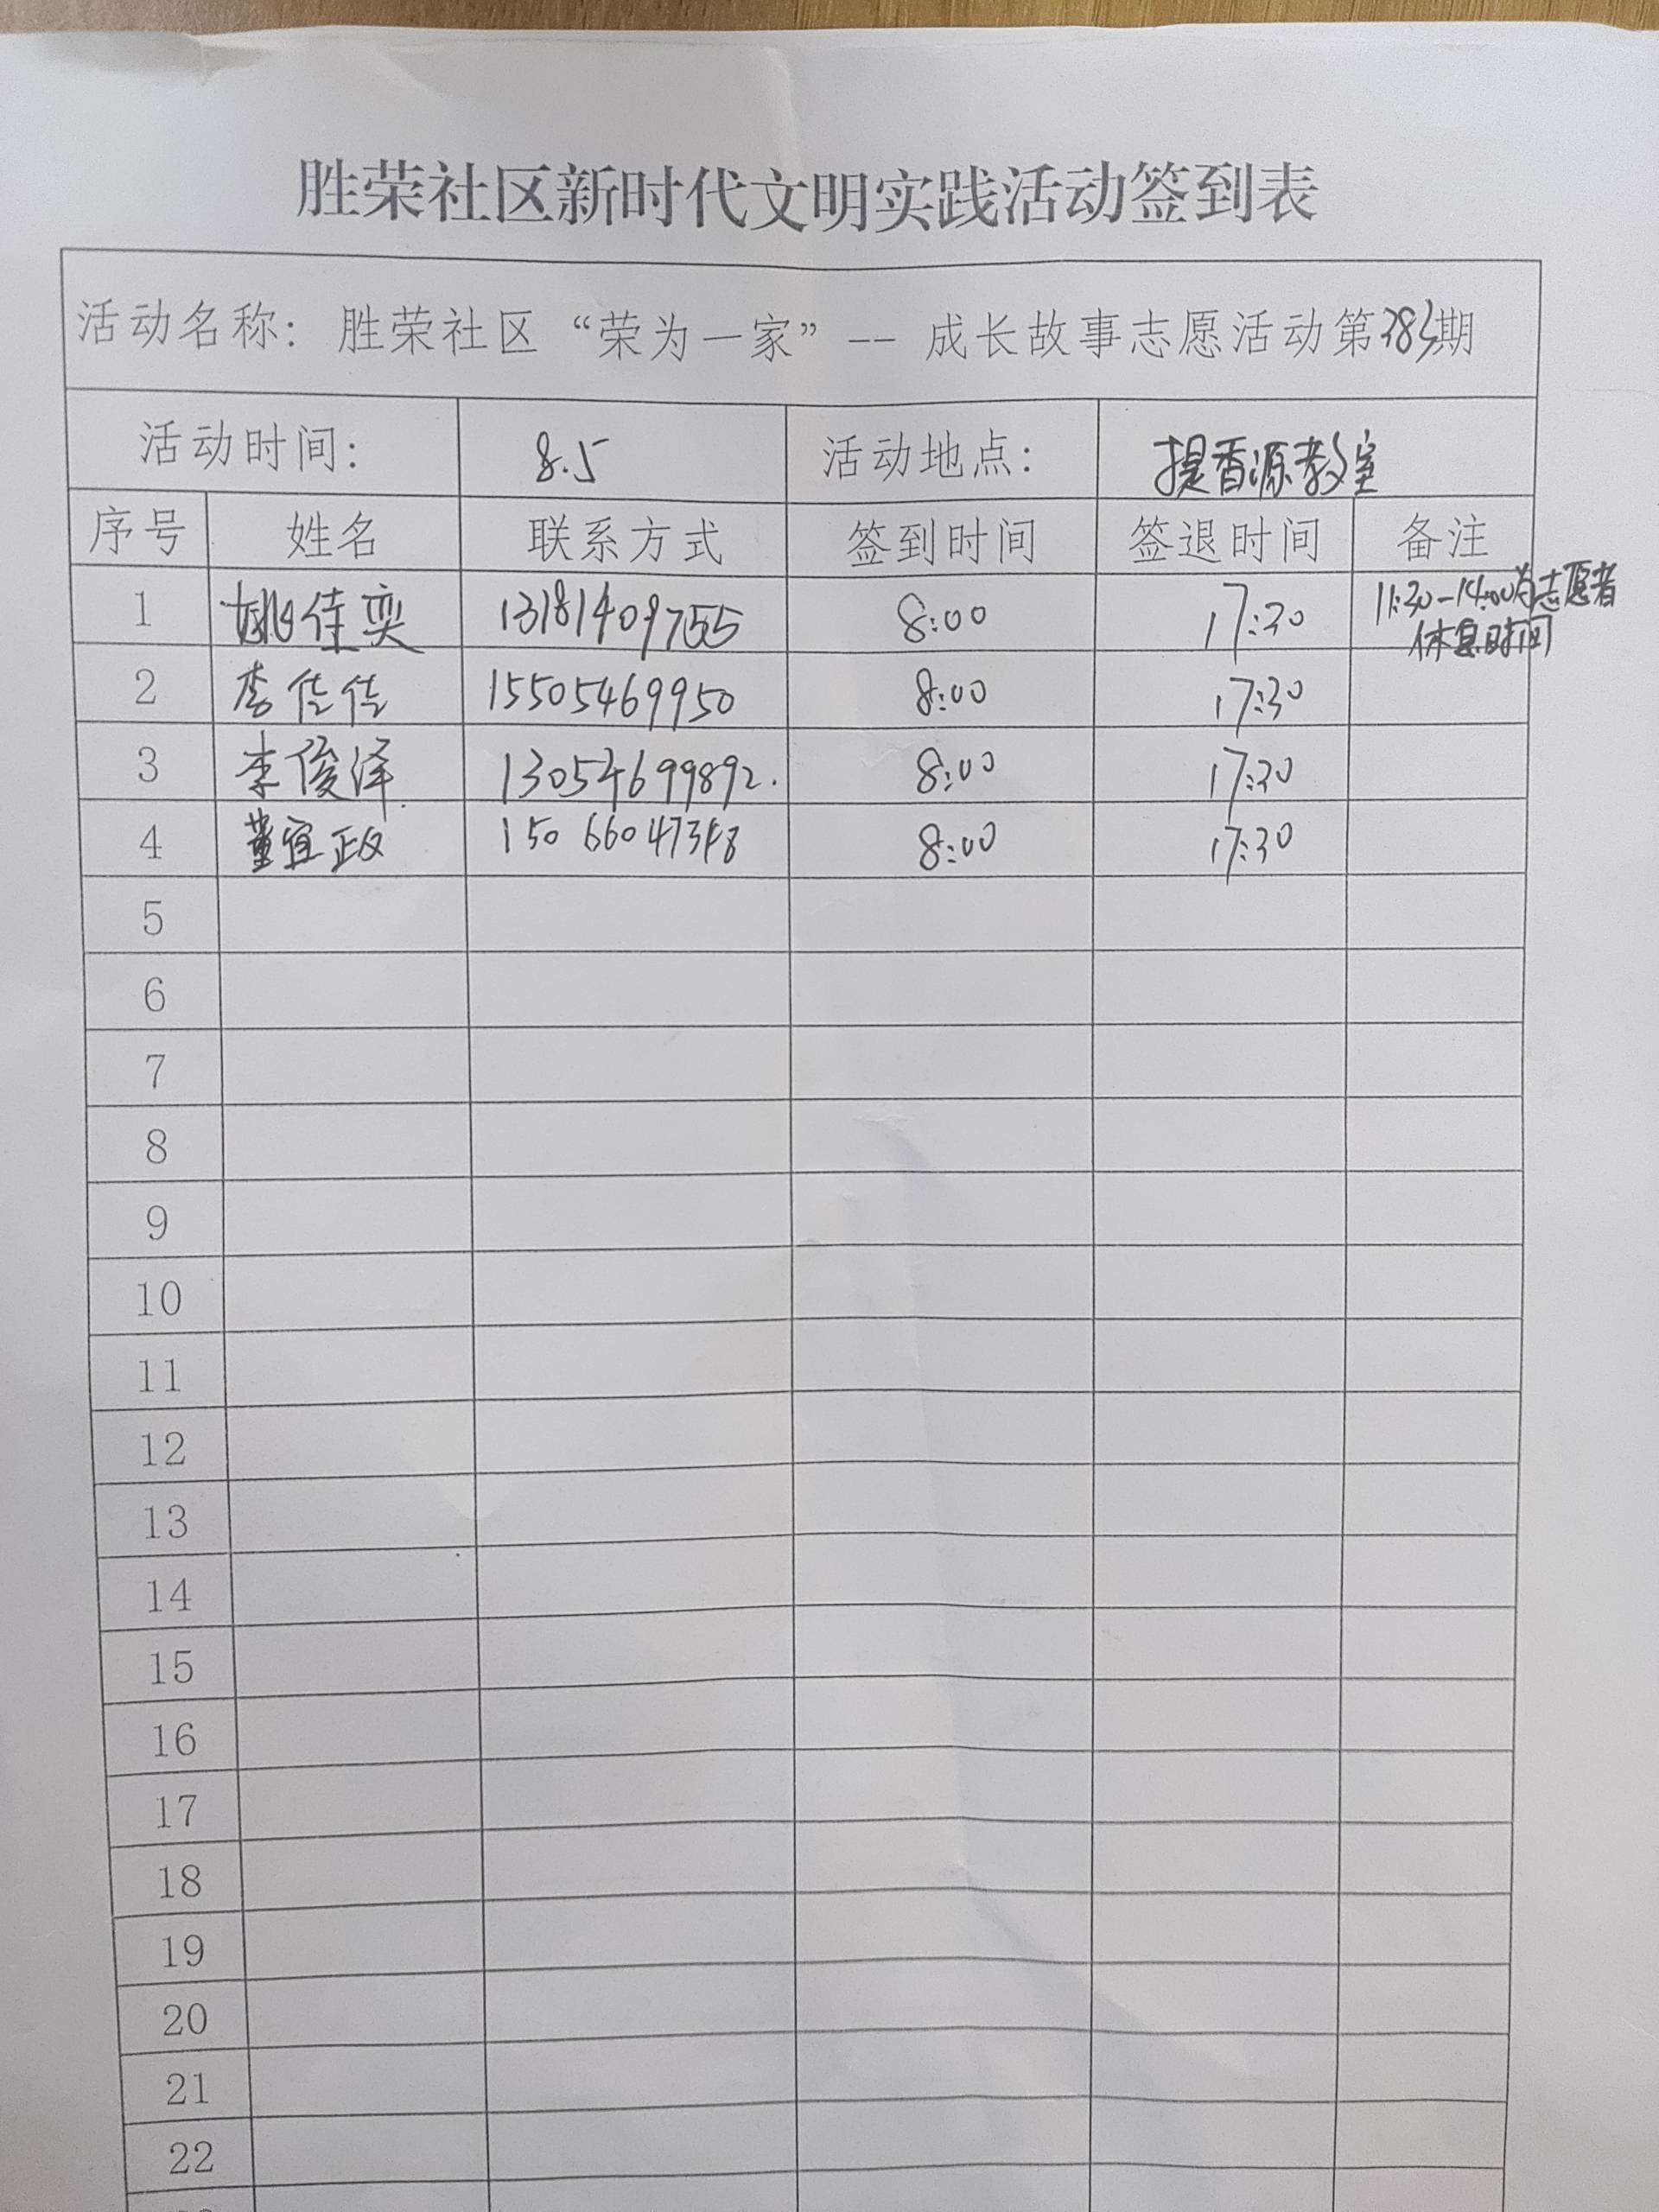 胜荣社区新时代文明实践活动签到表
活动名称：胜荣社区“荣为一家”-- 成长故事志愿活动第383期
活动时间： 8.5 活动地点： 提香源教室
序号 姓名 联系方式 签到时间 签退时间 备注
1 姚佳奕 13181409755 8:00 17:30 11:30-14:00为志愿者
休息时间
2 李佳佳 15505469950 8:00 17:30
3 李俊泽 13054699892. 8:00 17:30
4 董宜政 150 6604 8:00 17:30
5
6
7
8
9
10
11
12
13
14
15
16
17
18
19
20
21
22